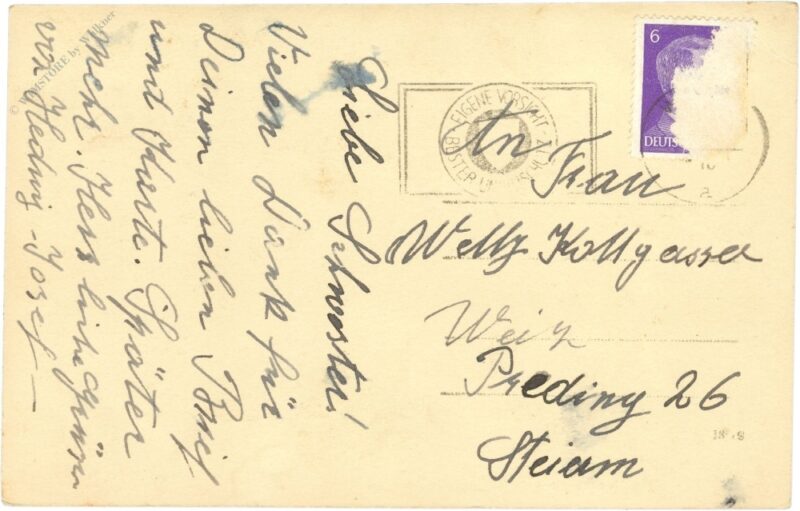 Liebe Schwester!
Vielen Dank für
Deinen lieben Brief
und Karte. Später
mehr. Herzliche Grüsse
von Hedwig - Josef -
An
Frau
Weltz Kollgasser
Weiz
Preding 26
Steierm
6
DEUTS
EIGENE VORSICHT
BESTER UNFALLSCHUTZ
a
© WOMSTORE by Wallner